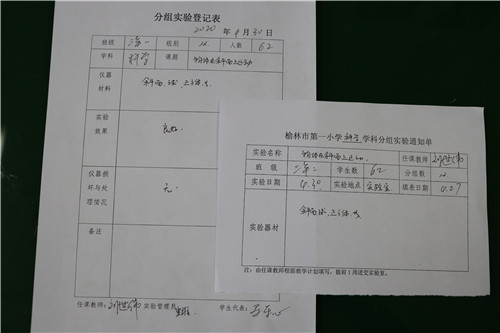 分组实验登记表
2020 年 9 月 30 日
班级 三年一 组别 12 人数 62
学科 科学 课题 物体在斜面上运动
仪器材料 斜面、球、正方体
实验效果 良好
仪器损坏与处理情况 无
备注
任课教师: 实验管理员: 学生代表:
榆林市第一小学 科学 学科分组实验通知单
实验名称 物体在斜面上运动 任课教师
班级 三年二 学生数 62 分组数 12
实验日期 9.30 实验地点 实验室 填表日期 9.27
实验器材 斜面、球、正方体
注:由任课教师根据教学计划填写,提前1周送交实验室。